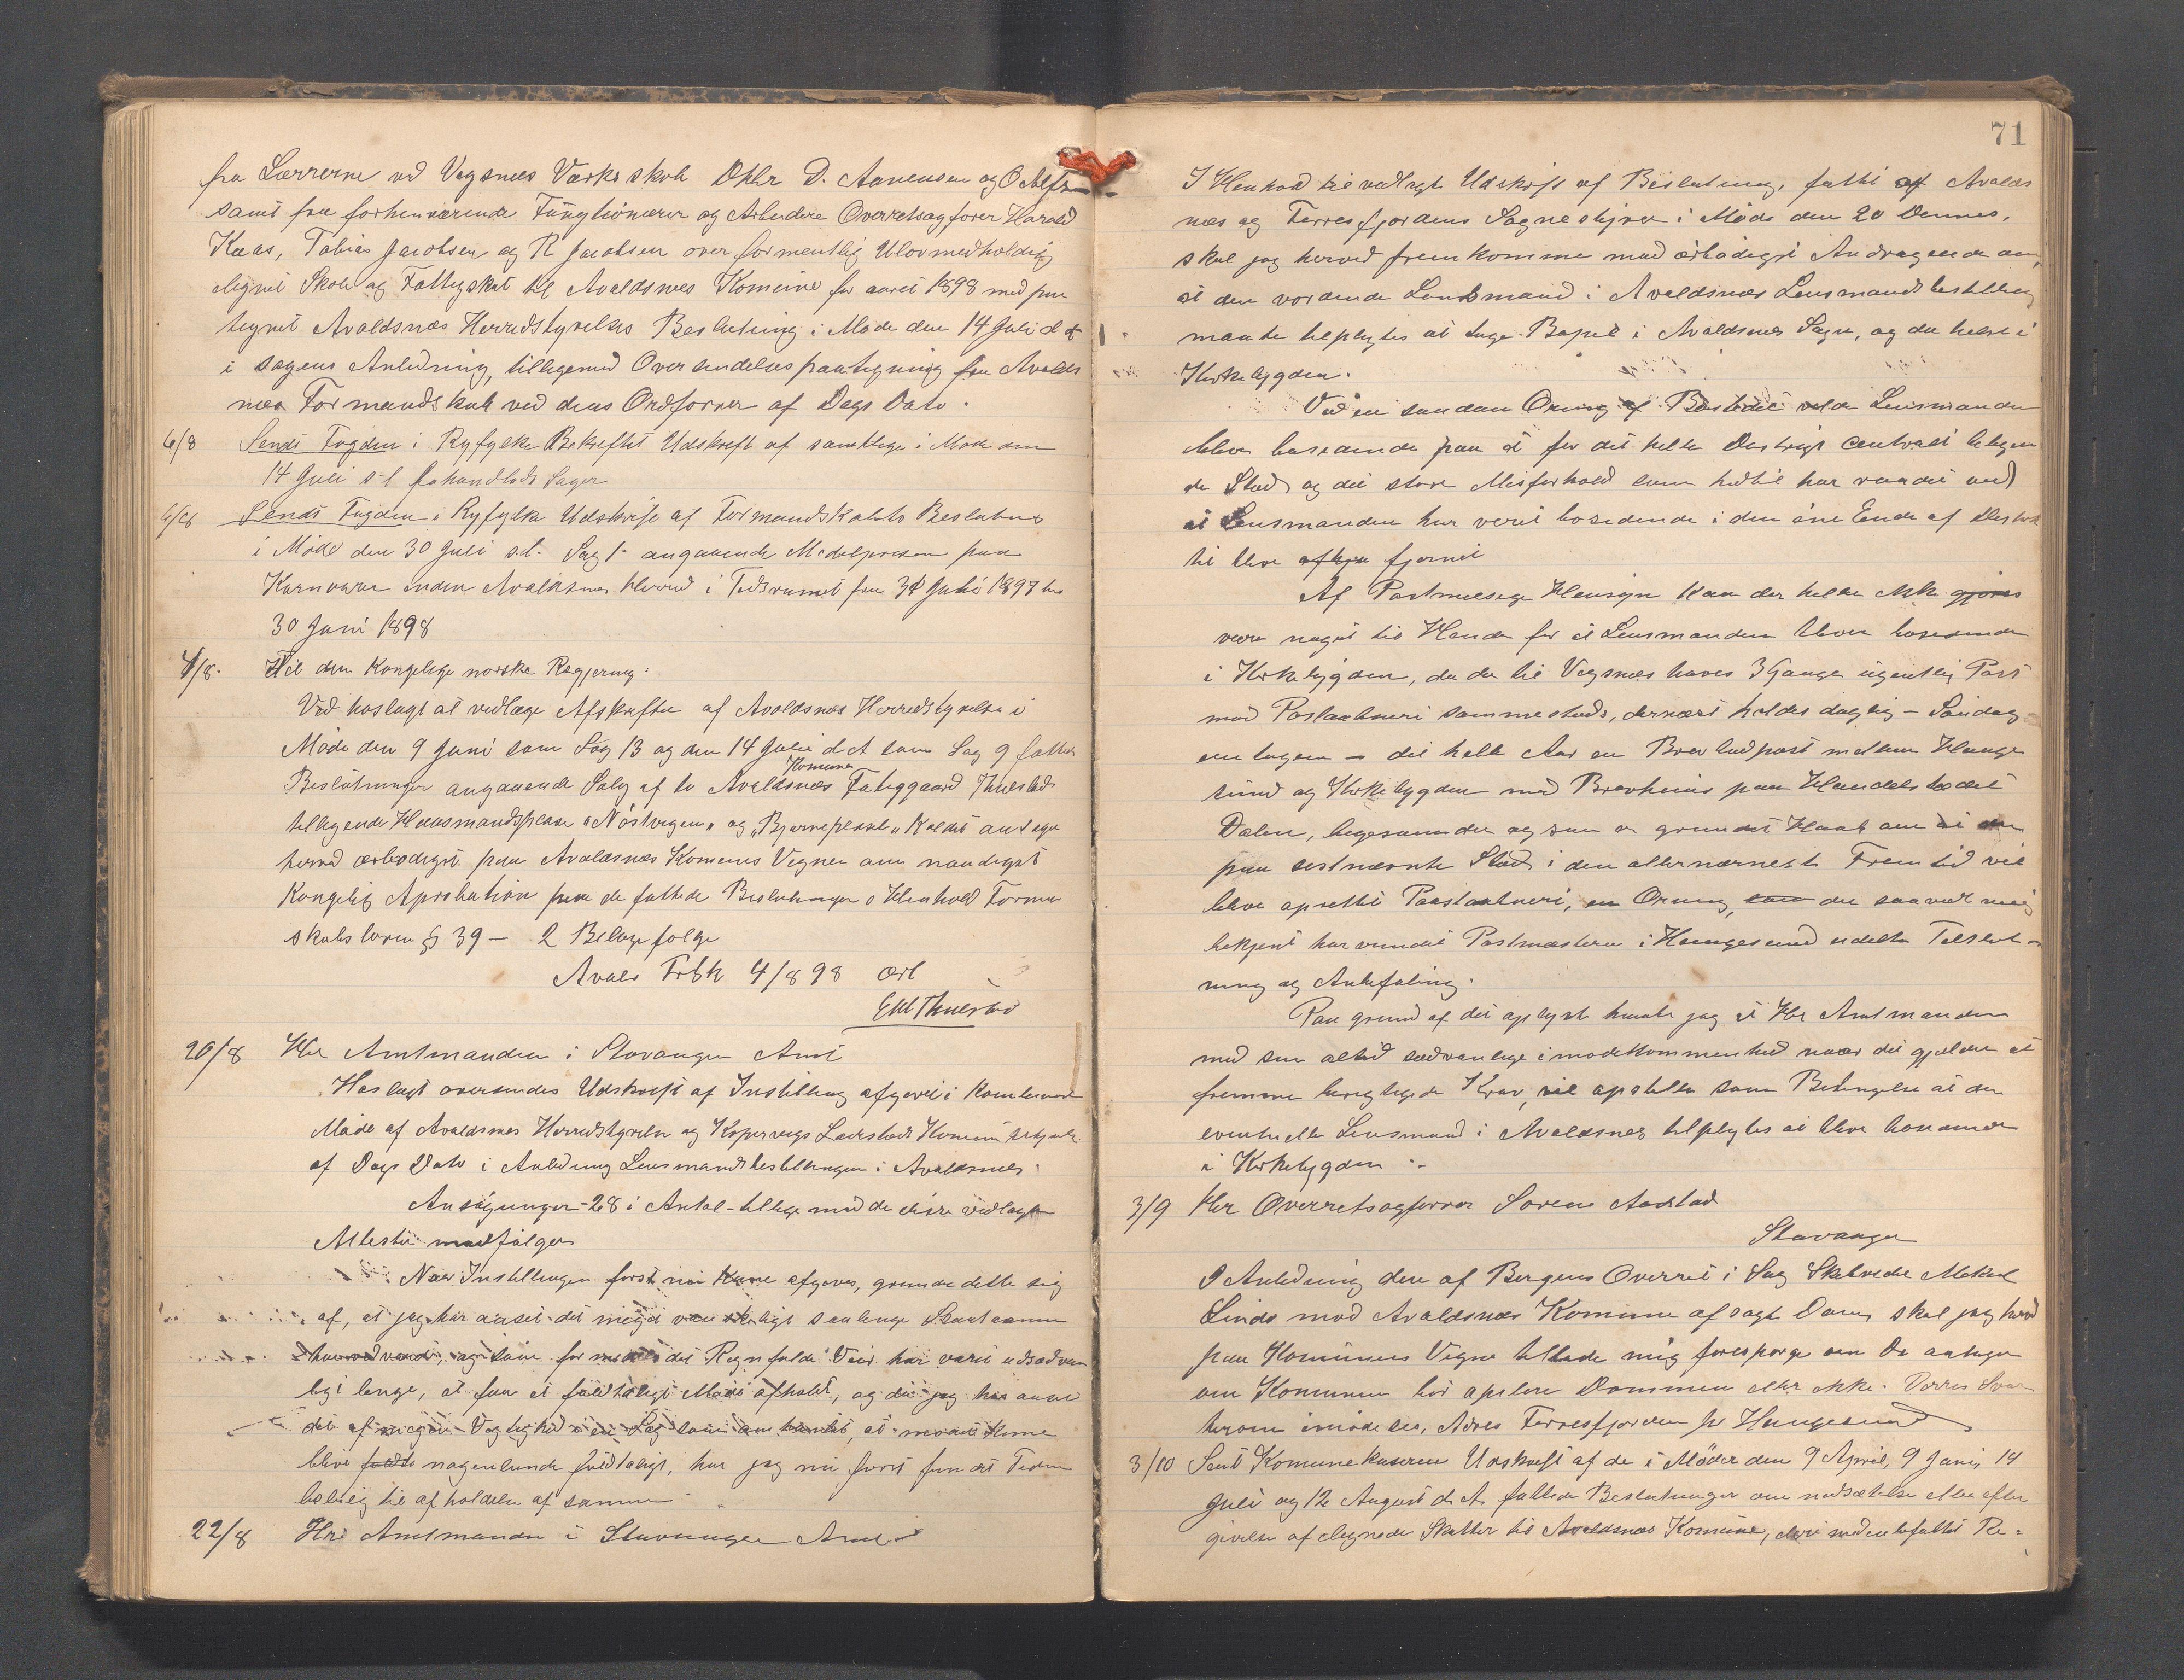 fra Lærrerne ved Vigsnes Værks skole DHhr D. Aanensen og O
samt fra forhenværende Fungtionærer og Arbeidere Overretsagfører Harald
Kaas, Tobias Jacobsen og R Jacobsen over formentlig Ulovmedholdig
lignet Skole og Fattigskat til Avaldsnes Komune for aaret 1898 med paa
tegnet Avaldsnæs Herredstyrelses Beslutning i Møde den 14 Juli d A
i sagens Anledning, tilligemed Oversendelses paategning fra Avalds
næs Formandskab ved dens Ordfører af Dags Dato.
6/8 Sendt Fogden i Ryfylke Bekræftet Udskrift af samtlige i Møde den
14 Juli s.l. behandlede Sager
6/8 Sendt Fogden i Ryfylke Udskrift af Formandskabets Beslutning
i Møde den 30 Juli s.l. Sag 1 angaaende Medelprisen paa
Kornvarer inden Avaldsnes Herred i Tidsrumet fra 30 Juni 1897 til
30 Juni 1898
4/8. Til den Kongelige norske Regjering.
Ved hoslagt at vedlægge Afskrifter af Avaldsnes Herredstyrelse i
Møde den 9 Juni som Sag 13 og den 14 Juli d A som Sag 9 fattede
Komunes
Beslutninger angaaende Salg af to Avaldsnæs Fatiggaard Thuestad
tilligende Huusmandsplase "Nøstvigen" og "Bjørneplasel" Kaldet ansøges
herved ærbødigst paa Avaldsnæs Komunes Vegne om naadigst
Kongelig Aprobation paa de fattede Beslutninger i Henhold Forman
skabsloven § 39 — 2 Bilage følge
Avals Frbk 4/8 98 ærb
EM Thuestad
20/8 Hr Amtmanden i Stavanger Amt
Hoslagt oversendes Udskrift af Instilling afgivet i Kombineret
Møde af Avaldsnes Herredstyrelse og Kopervigs Ladesteds Komunebestyrelse
af Dags Dato i Anledning Lensmandsbestillingen i Avaldsnes.
Ansøgninger - 28 i Antal - tillige med de disse vedlagte
Attester medfølger
Naar Instillingen først nu Kune afgives, grunder dette sig
af, at jeg har anset det meget vanskeligt saalenge
og som for det Regnfulde Veir har været usædvan
ligt lenge, at faa et fuldtaligt Møde afholdt, og da jeg har anset
det af megen Vigtighed i en Sag som om, at mødet Kune
blive fuldt nogenlunde fuldtaligt, har jeg nu først fundet Tiden
beleilig til afholdelse af samme
22/8 Hr Amtmanden i Stavanger Amt
71
I Henhold til vedlagte Udskrift af Beslutning, fattet af Avalds
næs og Førresfjordens Sognestyrer i Møde den 20 Dennes,
skal jeg herved fremkomme med ærbødigst Andragende om,
at den vordende Lensmand i Avaldsnæs Lensmandsbestilling
maatte tilpligtes at tage Bopæl i Avaldsnes Sogn, og da helst i
Kirkebygden.
Ved en saadan Orning af Bostedet vilde Lensmanden
blive boseende paa et for det hele Destrigt centralt beliggen
de Sted og det store Misforhold som hidtil har raadet ved
at Lensmanden har verit bosedende i den ene Ende af
til blive afhju fjernet
Af Postmæssige Hensyn Kan der heller ikke gjøres
være noget til Hinder for at Lensmanden bliver bosedende
i Kirkebygden, da der til Vigsnæs haves 3 Gange ugentlig Post
med Postaabneri sammesteds, dernæst holdes daglig - Søndag
en tagen — det hele Aar en Brevbudpost mellem Hauge
sund og Kirkebygden med Brevhuus paa Handelsstedet
Dalen, ligesom der ogsaa er grundet Haab om at
paa sistnævnte Sted i den allernærmeste Fremtid vil
blive oprettet Postaabneri, en Orning, som der saavidt mig
bekjent har vundet Postmæsteren i Haugesund udelte Tilslut
ning og Anbefaling.
Paa grund af det oplyste haaber jeg at Hr Amtmanden
med sin altid sædvanlige imødekommenhed naar det gjælder at
fremme berettigede Krav, vil opstille som Betingelse at den
eventuelle Lensmand i Avaldsnes tilpligtes at blive boende
i Kirkebygden.-
3/9 Hr Overretsagfører Søren Aadstad
Stavanger
I Anledning den af Bergens Overret i Sag Skibreder Mikal
Linds mod Avaldsnæs Komune afsagte Dom, skal jeg herved
paa Komunens Vegne tillade mig forespørge om De antager
om Komunen bør apelere Dommen eller ikke. Deres Svar
herom imødesees, Adres Førresfjorden pr Haugesund
3/10 Sent Komunekaseren Udskrift af de i Møder den 9 April, 9 Juni, 14
Juli og 12 August d. A. fattede Beslutninger om nedsættelse eller efter
givelse af lignede Skatter til Avaldsnæs Komune, deri indbefattet Re-